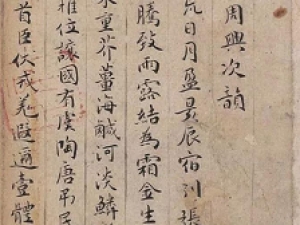 周興次韻
日月盈昃辰宿列張
騰致雨露結為霜金生
重芥薑海鹹河淡鱗
推位讓國有虞陶唐吊民
首臣伏戎羌遐邇壹體